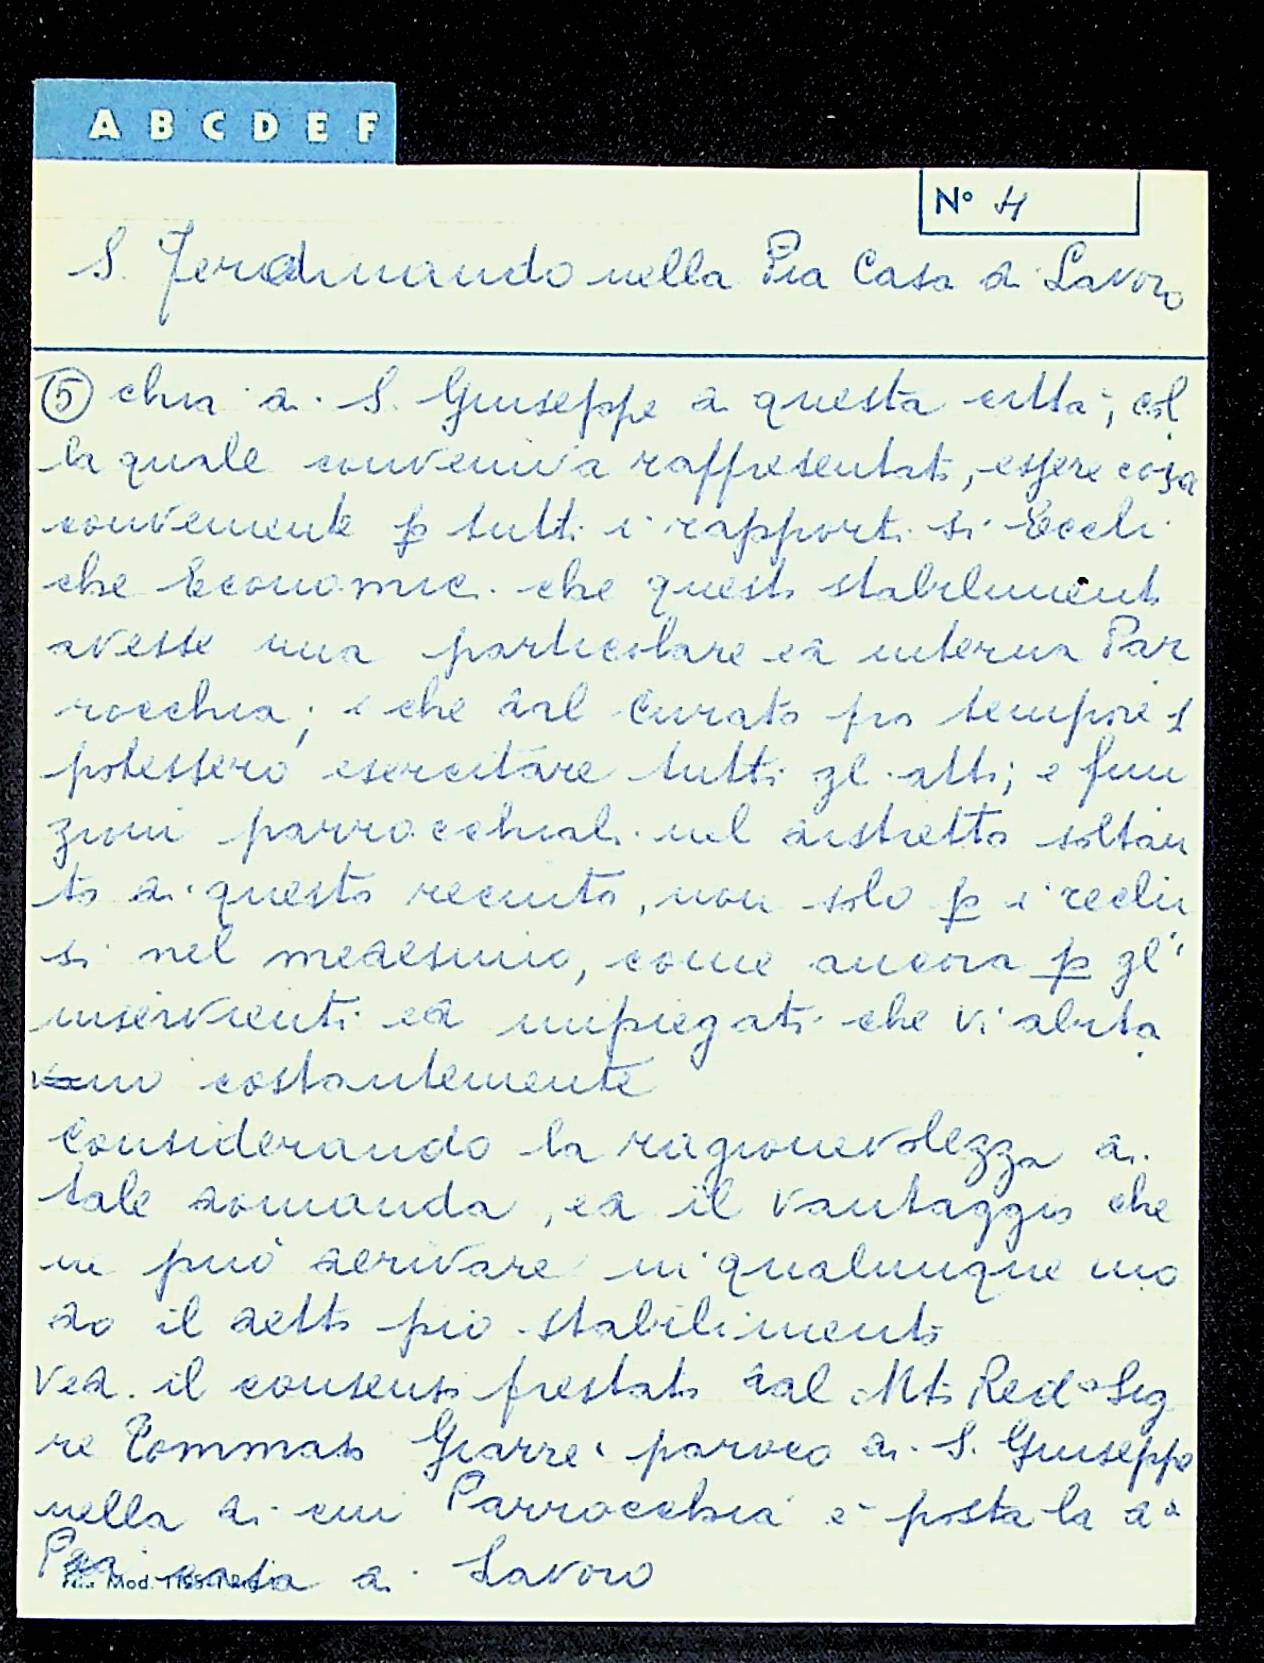 A B C D E F
N° 4
S. Ferdinando nella Pia Casa di Lavoro
5 chia di S. Giuseppe di questa città, col
la quale conveniva rappresentati, essere cosa
conveniente p tutti i rapporti si Eccli
che Economici che questo stabilimento
avesse una particolare ed interna Par
rocchia; e che dal Curato pro tempore s
potessero esercitare tutti gl atti; e fun
zioni parrocchiali nel distretto soltan
to di questo recinto, non solo p i reclu
si nel medesimo, come ancora p gl'
inservienti ed impiegati che vi abita
no costantemente
Considerando la ragionevolezza di
tale domanda, ed il vantaggio che
ne può derivare in qualunque mo
do il detto pio stabilimento
Ved. il consenso prestato dal Mto Red° Sig
re Tommaso Giarrè paroco di S. Giuseppe
nella di cui Parrocchia è posta la da
Pia casa di Lavoro